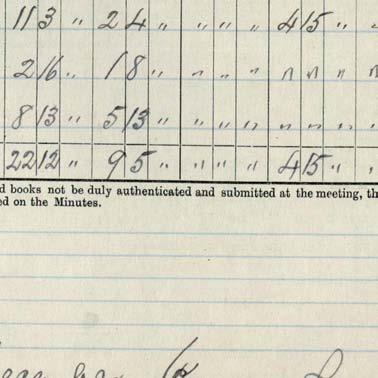 11 3 " 2 4 " " " " 4 15 " "
2 16 " 1 8 " " " " " " " "
8 13 " 5 13 " " " " " " " "
22 12 " 9 5 " " " " 4 15 " "
d books not be duly authenticated and submitted at the meeting, th
ed on the Minutes.